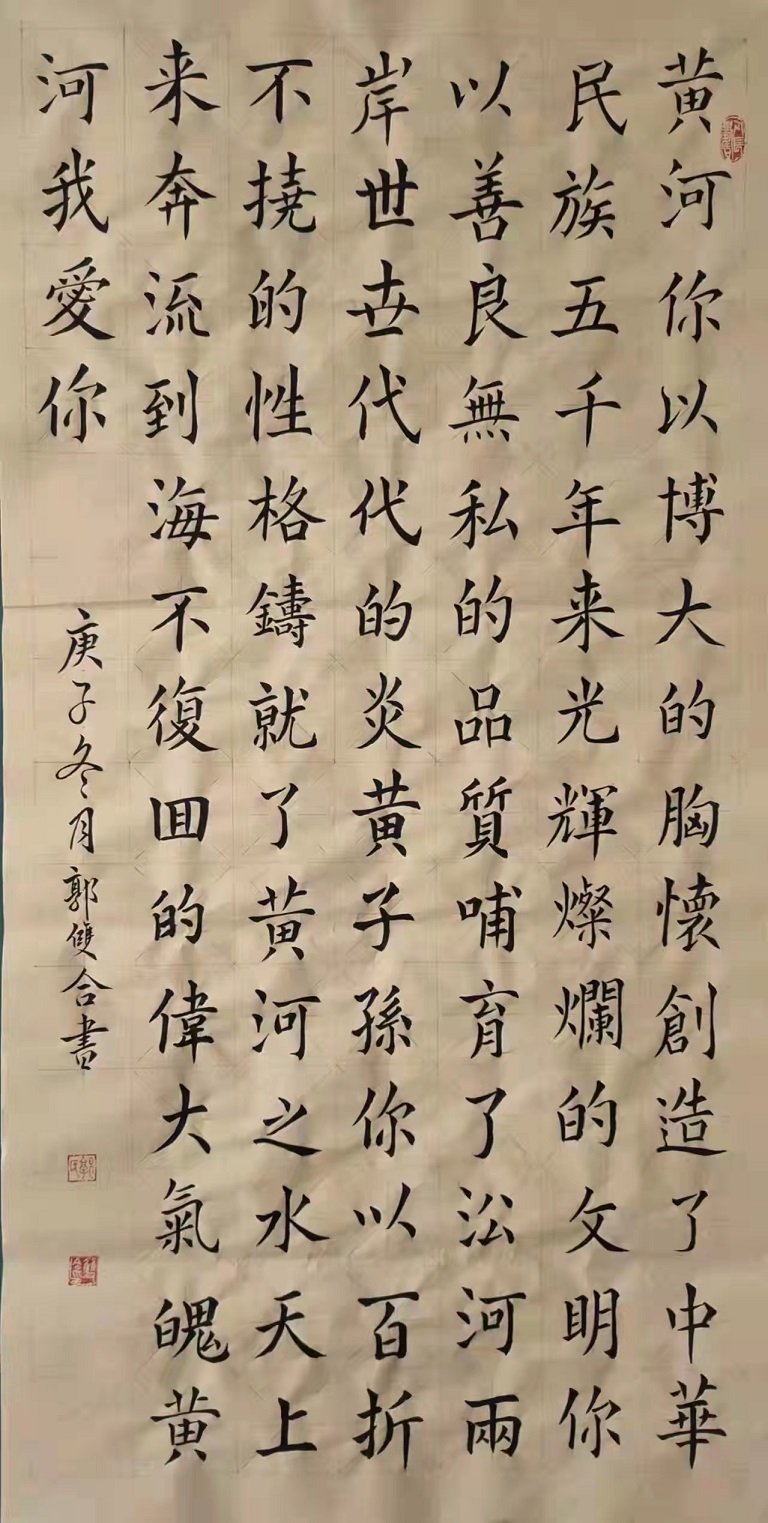 黄河你以博大的胸懷創造了中華
民族五千年来光輝燦爛的文明你
以善良無私的品質哺育了㳂河兩
岸世世代代的炎黄子孫你以百折
不撓的性格鑄就了黄河之水天上
来奔流到海不復回的偉大氣魄黄
河我愛你
庚子冬月郭雙合書